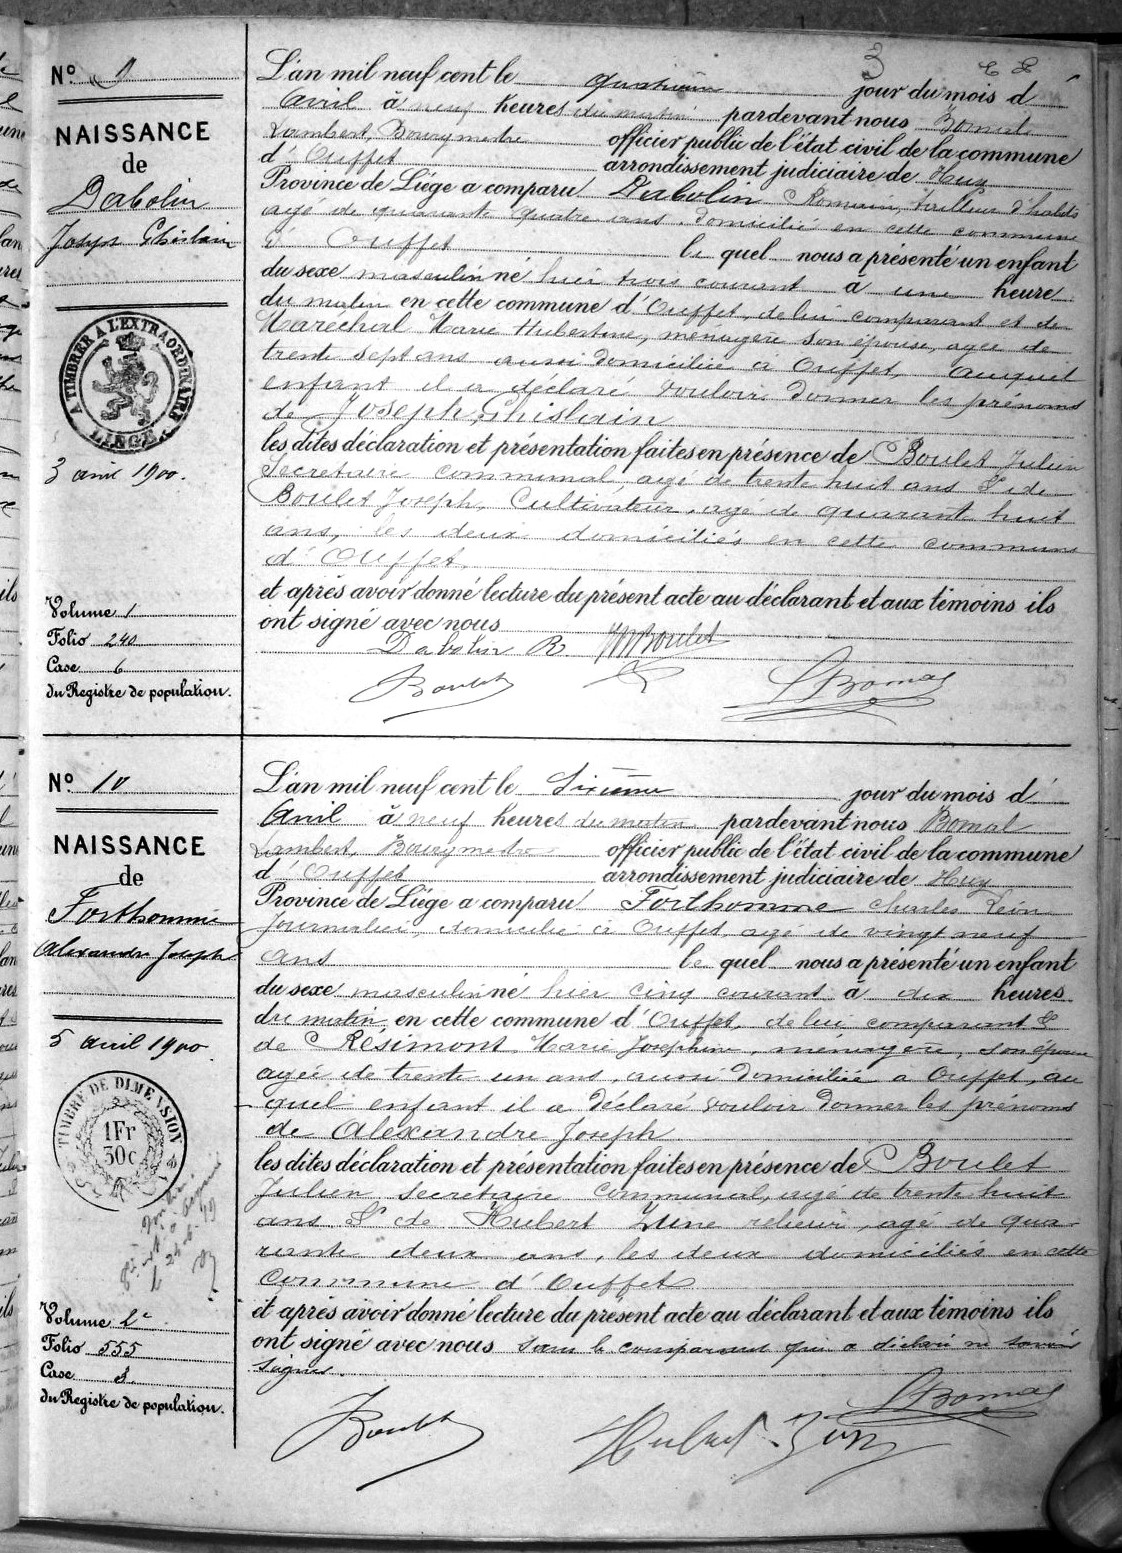 3
N° 9
NAISSANCE
de
Dabolin
Joseph Ghislain
A TIMBRER A L'EXTRAORDINAIRE
LIÉGE
3 avril 1900.
Volume 1
Folio 240
Case 6
du Registre de population.
L'an mil neuf cent le quatrième jour du mois d
Avril à neuf heures du matin pardevant nous Bomal
Lambert, Bourgmestre officier public de l'état civil de la commune
d' Ouffet arrondissement judiciaire de Huy
Province de Liége a comparu Dabolin Romain, tailleur d'habits
agé de quarante quatre ans, domicilié en cette commune
d' Ouffet le quel nous a présenté un enfant
du sexe masculin né hier trois courant à une heure
du matin en cette commune d' Ouffet, de lui comparant et de
Maréchal Marie Hubertine, ménagère son épouse, agée de
trente sept ans aussi domiciliée à Ouffet, auquel
enfant il a déclaré vouloir donner les prénoms
de Joseph, Ghislain
les dites déclaration et présentation faites en présence de Boulet Julien
Secrétaire communal, agé de trente huit ans & de
Boulet Joseph, Cultivateur, agé de quarante huit
ans, les deux domiciliés en cette commune
d' Ouffet.
et après avoir donné lecture du présent acte au déclarant et aux témoins ils
ont signé avec nous
Dabolin R. Boulet
Boulet LBomal
N° 10
NAISSANCE
de
Forthomme
Alexandre Joseph
5 avril 1900.
TIMBRE DE DIMENSION
1Fr
30c
Volume 2e
Folio 555
Case 3
du Registre de population.
L'an mil neuf cent le Sixième jour du mois d
Avril à neuf heures du matin pardevant nous Bomal
Lambert, Bourgmestre officier public de l'état civil de la commune
d' Ouffet arrondissement judiciaire de Huy
Province de Liége a comparu Forthomme Charles Léon
Journalier, domicilié à Ouffet, agé de vingt neuf
ans le quel nous a présenté un enfant
du sexe masculin né hier cinq courant à dix heures
du matin en cette commune d' Ouffet, de lui comparant &
de Résimont Marie Josephine, ménagère, son épouse
agée de trente un ans, aussi domiciliée à Ouffet, au
quel enfant il a déclaré vouloir donner les prénoms
de Alexandre Joseph
les dites déclaration et présentation faites en présence de Boulet
Julien, secrétaire communal, agé de trente huit
ans & de Hubert Zune relieur, agé de qua-
rante deux ans, les deux domiciliés en cette
commune d' Ouffet
et après avoir donné lecture du présent acte au déclarant et aux témoins ils
ont signé avec nous sauf le comparant qui a déclaré ne savoir
signer.
Boulet Hubert LBomal